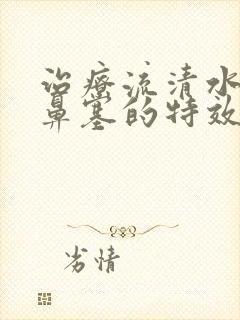 治疗流清水
鼻塞的特效
劣情